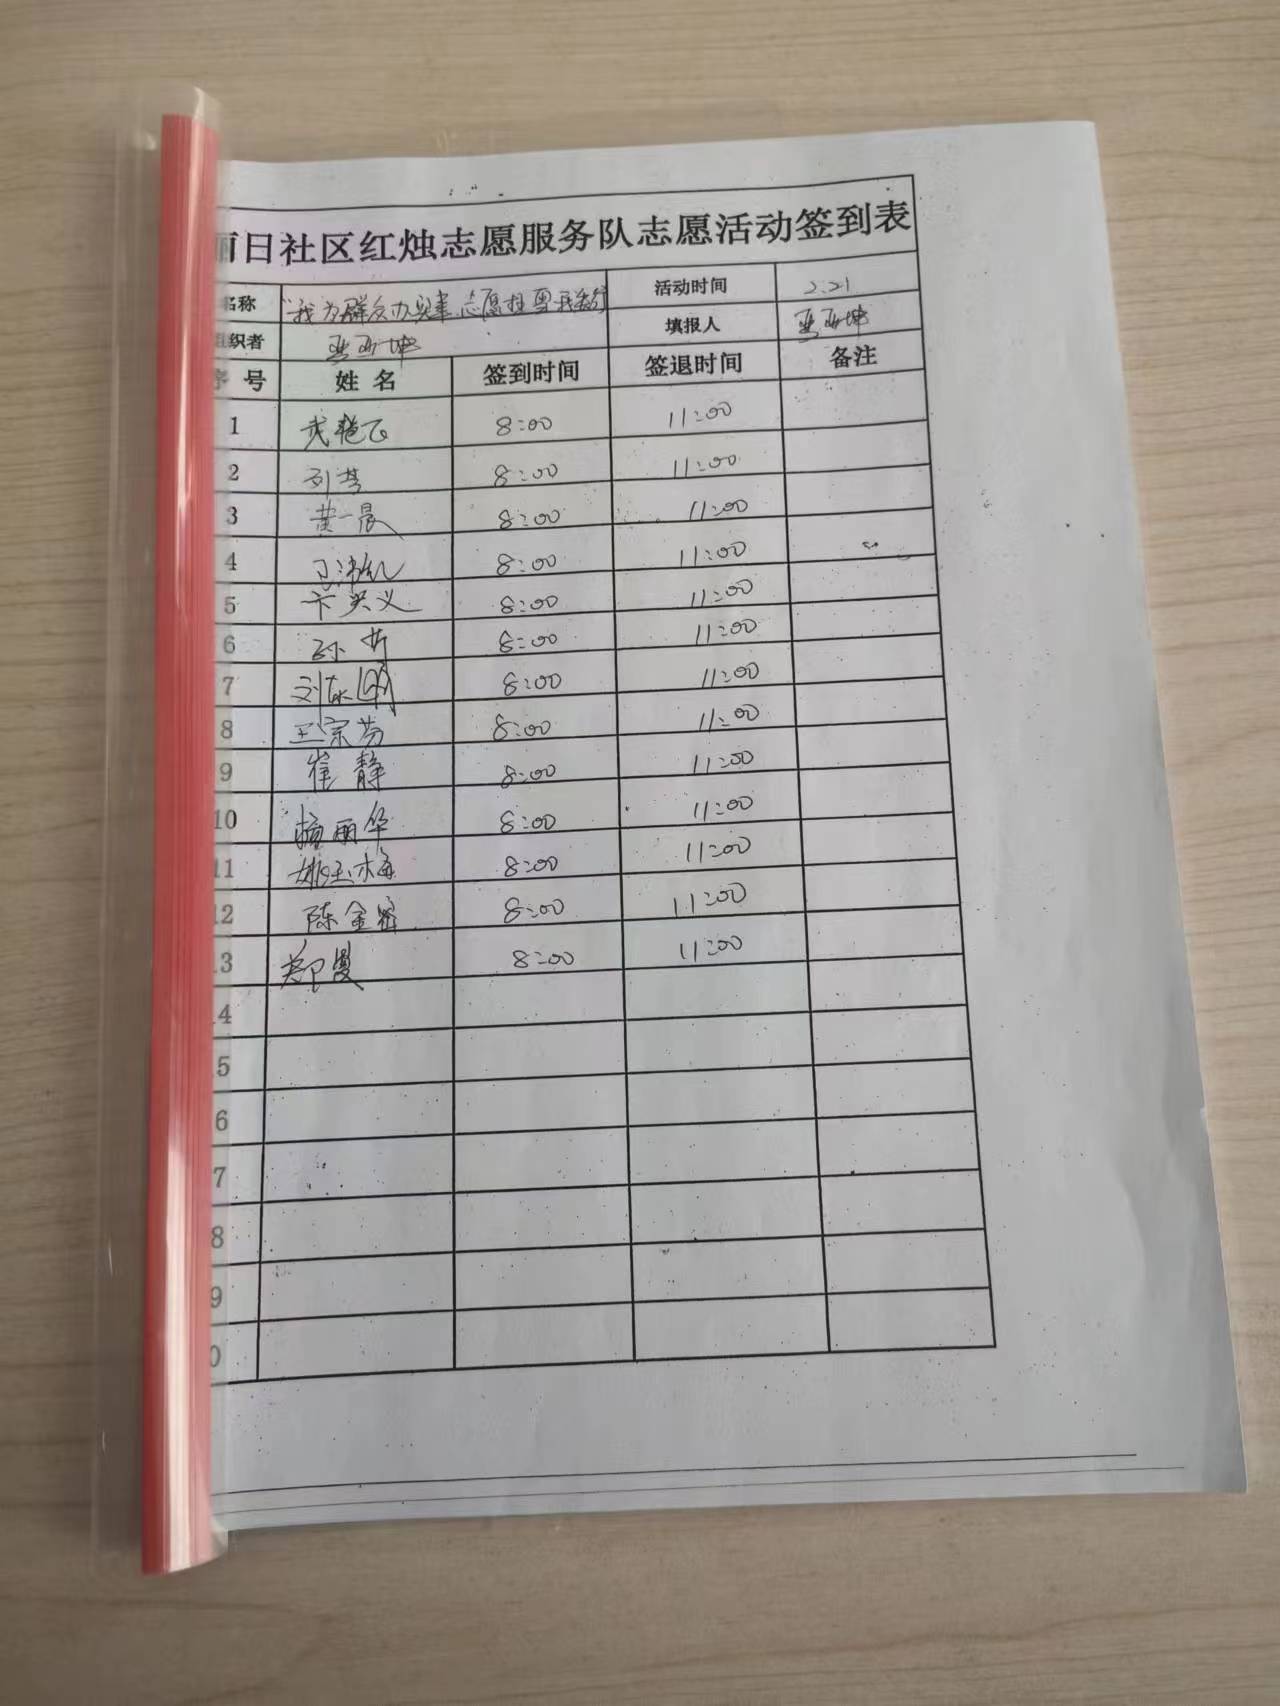 丽日社区红烛志愿服务队志愿活动签到表
名称 "我为群众办实事 志愿 我先行 活动时间 2.21
组织者 填报人
序号 姓名 签到时间 签退时间 备注
1 武艳飞 8:00 11:00
2 刘芳 8:00 11:00
3 黄一晨 8:00 11:00
4 8:00 11:00
5 卞兴义 8:00 11:00
6 孙哲 8:00 11:00
7 刘东明 8:00 11:00
8 王宗芳 8:00 11:00
9 崔静 8:00 11:00
10 杨丽华 8:00 11:00
11 姚玉梅 8:00 11:00
12 陈金 8:00 11:00
13 郑曼 8:00 11:00
4
5
6
7
8
9
0